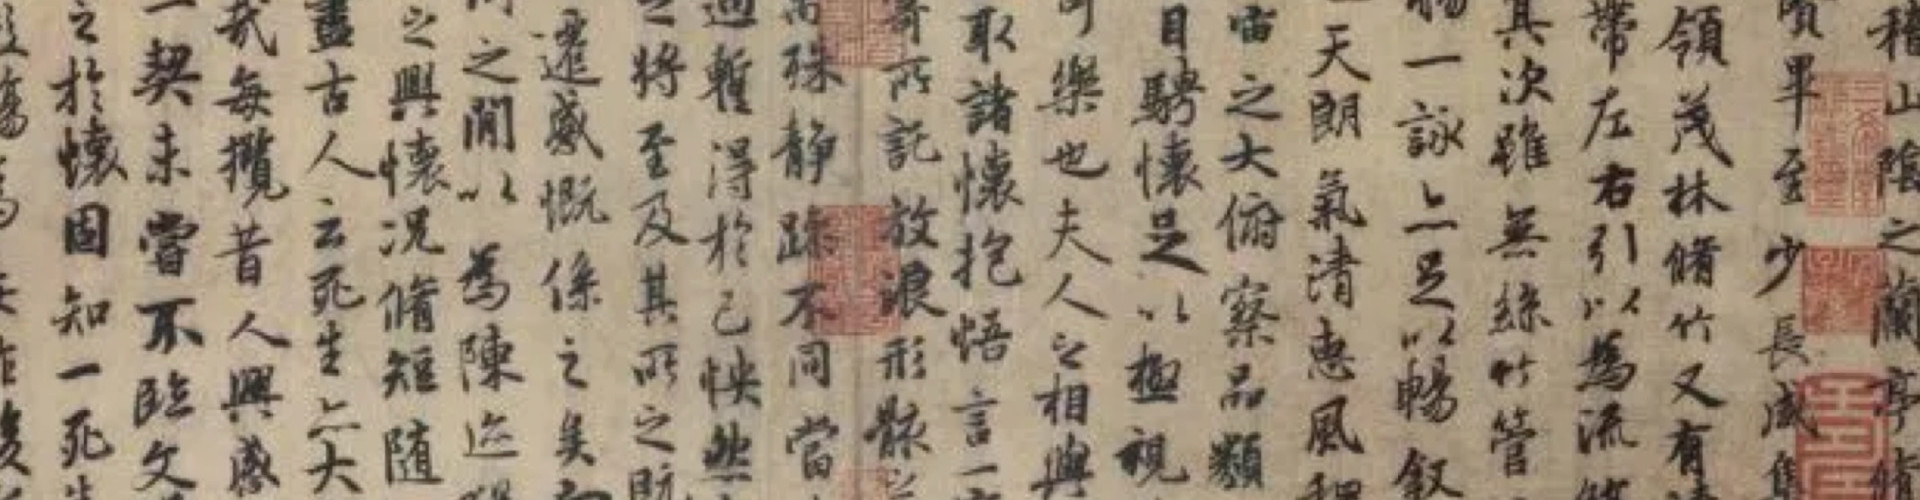 稽山陰之蘭亭脩
賢畢至少長咸集
領茂林脩竹又有清
帶左右引以為流觴
其次雖無絲竹管
觴一詠亦足以暢叙
天朗氣清惠風和
宙之大俯察品類
目騁懷足以極視
可樂也夫人之相與
取諸懷抱悟言一室
寄所託放浪形骸之
萬殊静躁不同當
遇暫得於己怏然
之將至及其所之既
遷感慨係之矣向
之閒以為陳迹
之興懷況脩短隨
盡古人云死生亦大
哉每攬昔人興感
一契未嘗不臨文
之於懷固知一死生